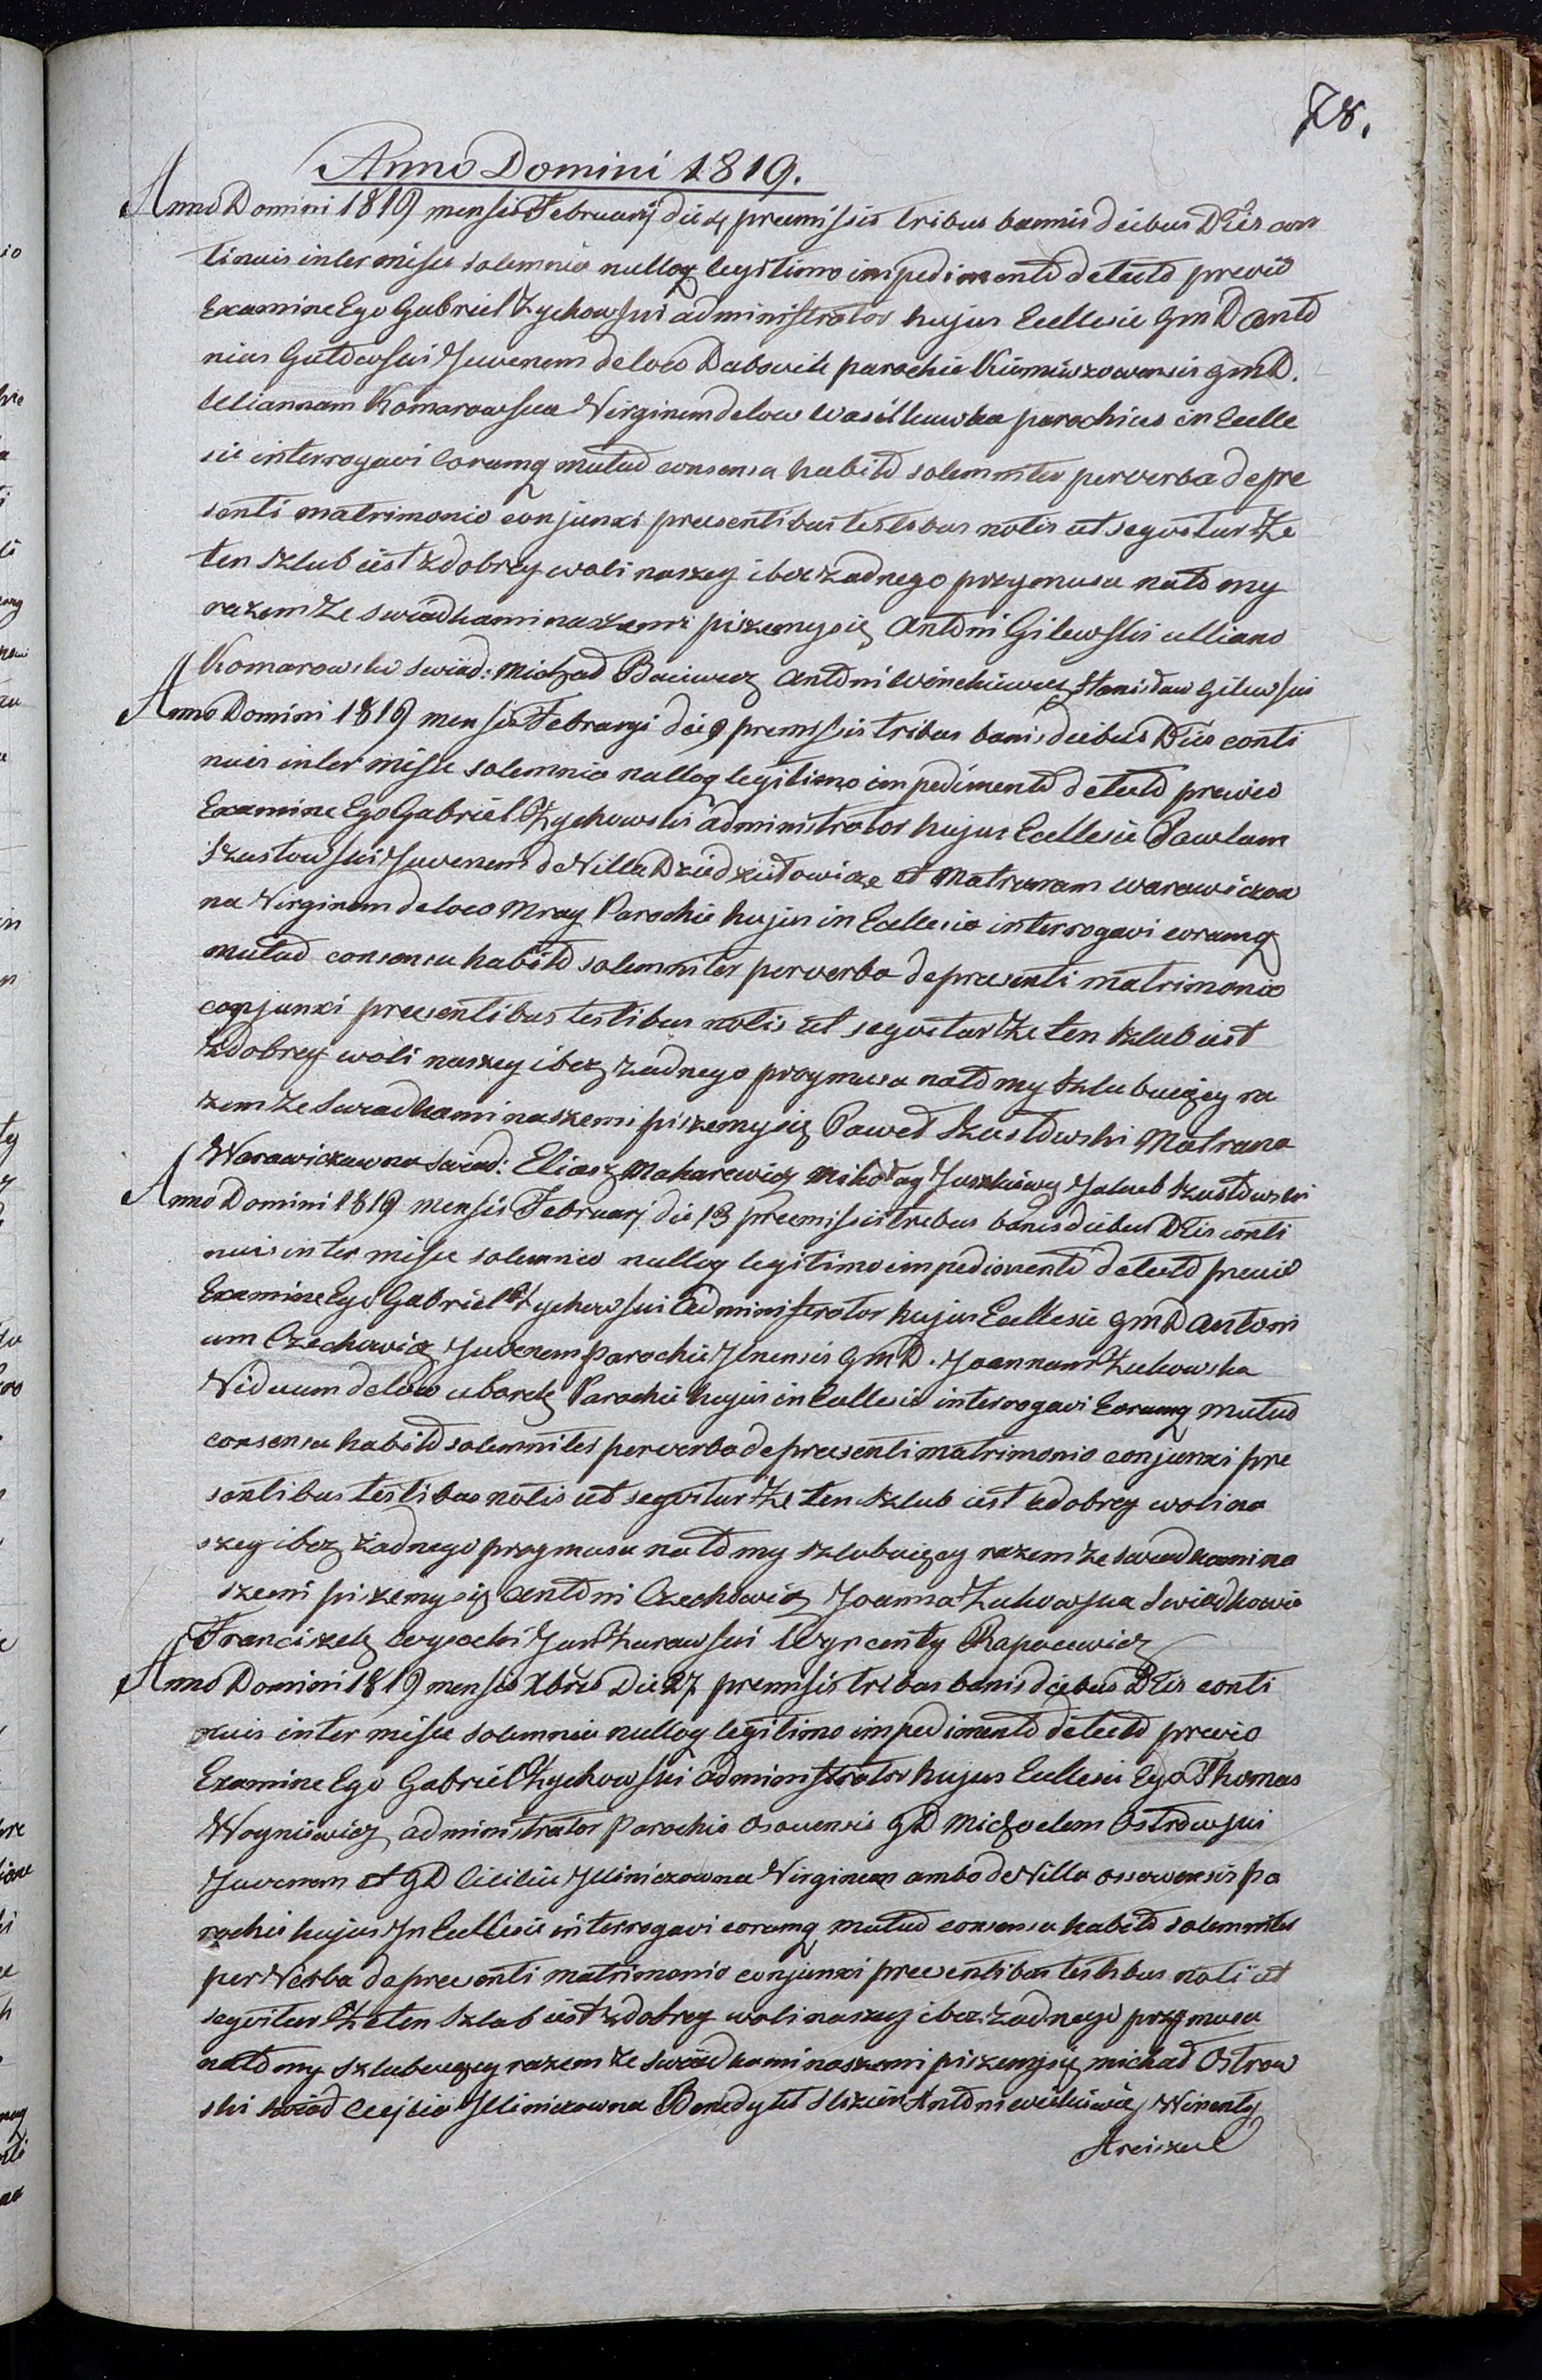 78.
Anno Domini 1819.
Anno Domini 1819 mensis Februarij die 4 premissis tribus bannis diebus Dñis con
tinuis inter missæ solemnia nulloq legitimo impedimentõ detectõ previõ
Examine Ego Gabriel Zychowski administrator hujus Ecclesie GmD Antõ
nius Gutowski Juvenem de loco Dabowik parochie GmD.
Uliannam Komarowska Virginem de loco Wasilkuwka parochius in Eccle
sie interrogavi Eorumq mutuõ consensu habitõ solemniter per verba de pre
senti matrimonio conjunxi presentibus testibus notis ut seqvitur Że
ten szlub iest z dobrey woli naszey i bez żadnego przymusu natõ my
razem ze swiadkami naszemi piszemysię Antõni Gilewski Uliana
Komarowska swiad: Michał Baciewicz Antõni Winckiewicz Stanisław Gilewski
Anno Domini 1819 mensis Februaryi die 9 premissis tribus banis diebus Dñis conti
nuis inter missæ solemnia nulloq legitimo impedimentõ detectõ previo
Examine Ego Gabriel Zychowski administrator hujus Ecclesie Pawlum
Szustowski Juvenem de Villa Dziedziutowicze et Matrunam Warawiczoa
na Virginem de loco Mray Parochie hujus in Ecclesia interrogavi eorumq
mutuõ consensu habitõ solemniter per verba de presenti matrimonio
conjunxi presentibus testibus notis ut seqvitur Że ten szlub iest
z dobrey woli naszey i bez żadnego przymusu natõ my szlubuięcy ra
zem ze swiadkami naszemi piszemysię Paweł Szustowski Matruna
Warawiczawna swiad: Eliasz Makarewicz Mikołay Juszkiewicz Jakub Szustowski
Anno Domini 1819 mensis Februarj die 13 premissis tribus banis diebus Dñis conti
nuis inter missæ solemnia nulloq legitimo impedimentõ detectõ previõ
Examine Ego Gabriel Zychowski Administrator hujus Ecclesie GmD Antoni
um Czechowicz Juvenem parochie Jlnensis GmD. Joannam Żukowska
Viduum de loco Uborek Parochie hujus in Ecclesie interrogavi Eorumq mutuõ
consensu habitõ solemniter per verba de presenti matrimonio conjunxi pre
sentibus testibus notis ut seqvitur Że ten szlub iest z dobrey woli na
szey i bez żadnego przymusu natõ my szlubuięcy razem ze swiadkami na
szemi piszemysię Antõni Czechowicz Joanna Żukowska Swiadkowie
Franciszek Wysocki Jan Żurawski Wyncenty Rapacewicz
Anno Domini 1819 mensis Xbris Die 27 premisis tribus banis diebus Dñis conti
nuis inter missæ solemnia nulloq legitimo impedimentõ detectõ previo
Examine Ego Gabriel Zychowski administrator hujus Ecclesie Ego Thomas
Woyniewicz administrator Parochie Osovensis GD Michaelem Ostrowski
Juvenem et GD Ciciliu Jlliniczowna Virginem ambo de Villa ossowensis pa
rochie hujus In Ecclesie interrogavi eorumq mutuõ consensu habitõ solemniter
per Verba de presenti matrimonio conjunxi presentibus testibus noti ut
seqvitur Że ten szlub iest z dobrey woli naszey i bez żadnego przymusu
natõ my szlubuięcy razem ze swiadkami naszemi piszemysię michał Ostrow
ski swiad Cecylia Jlliniczowna Benedykt Antõni Wincenty